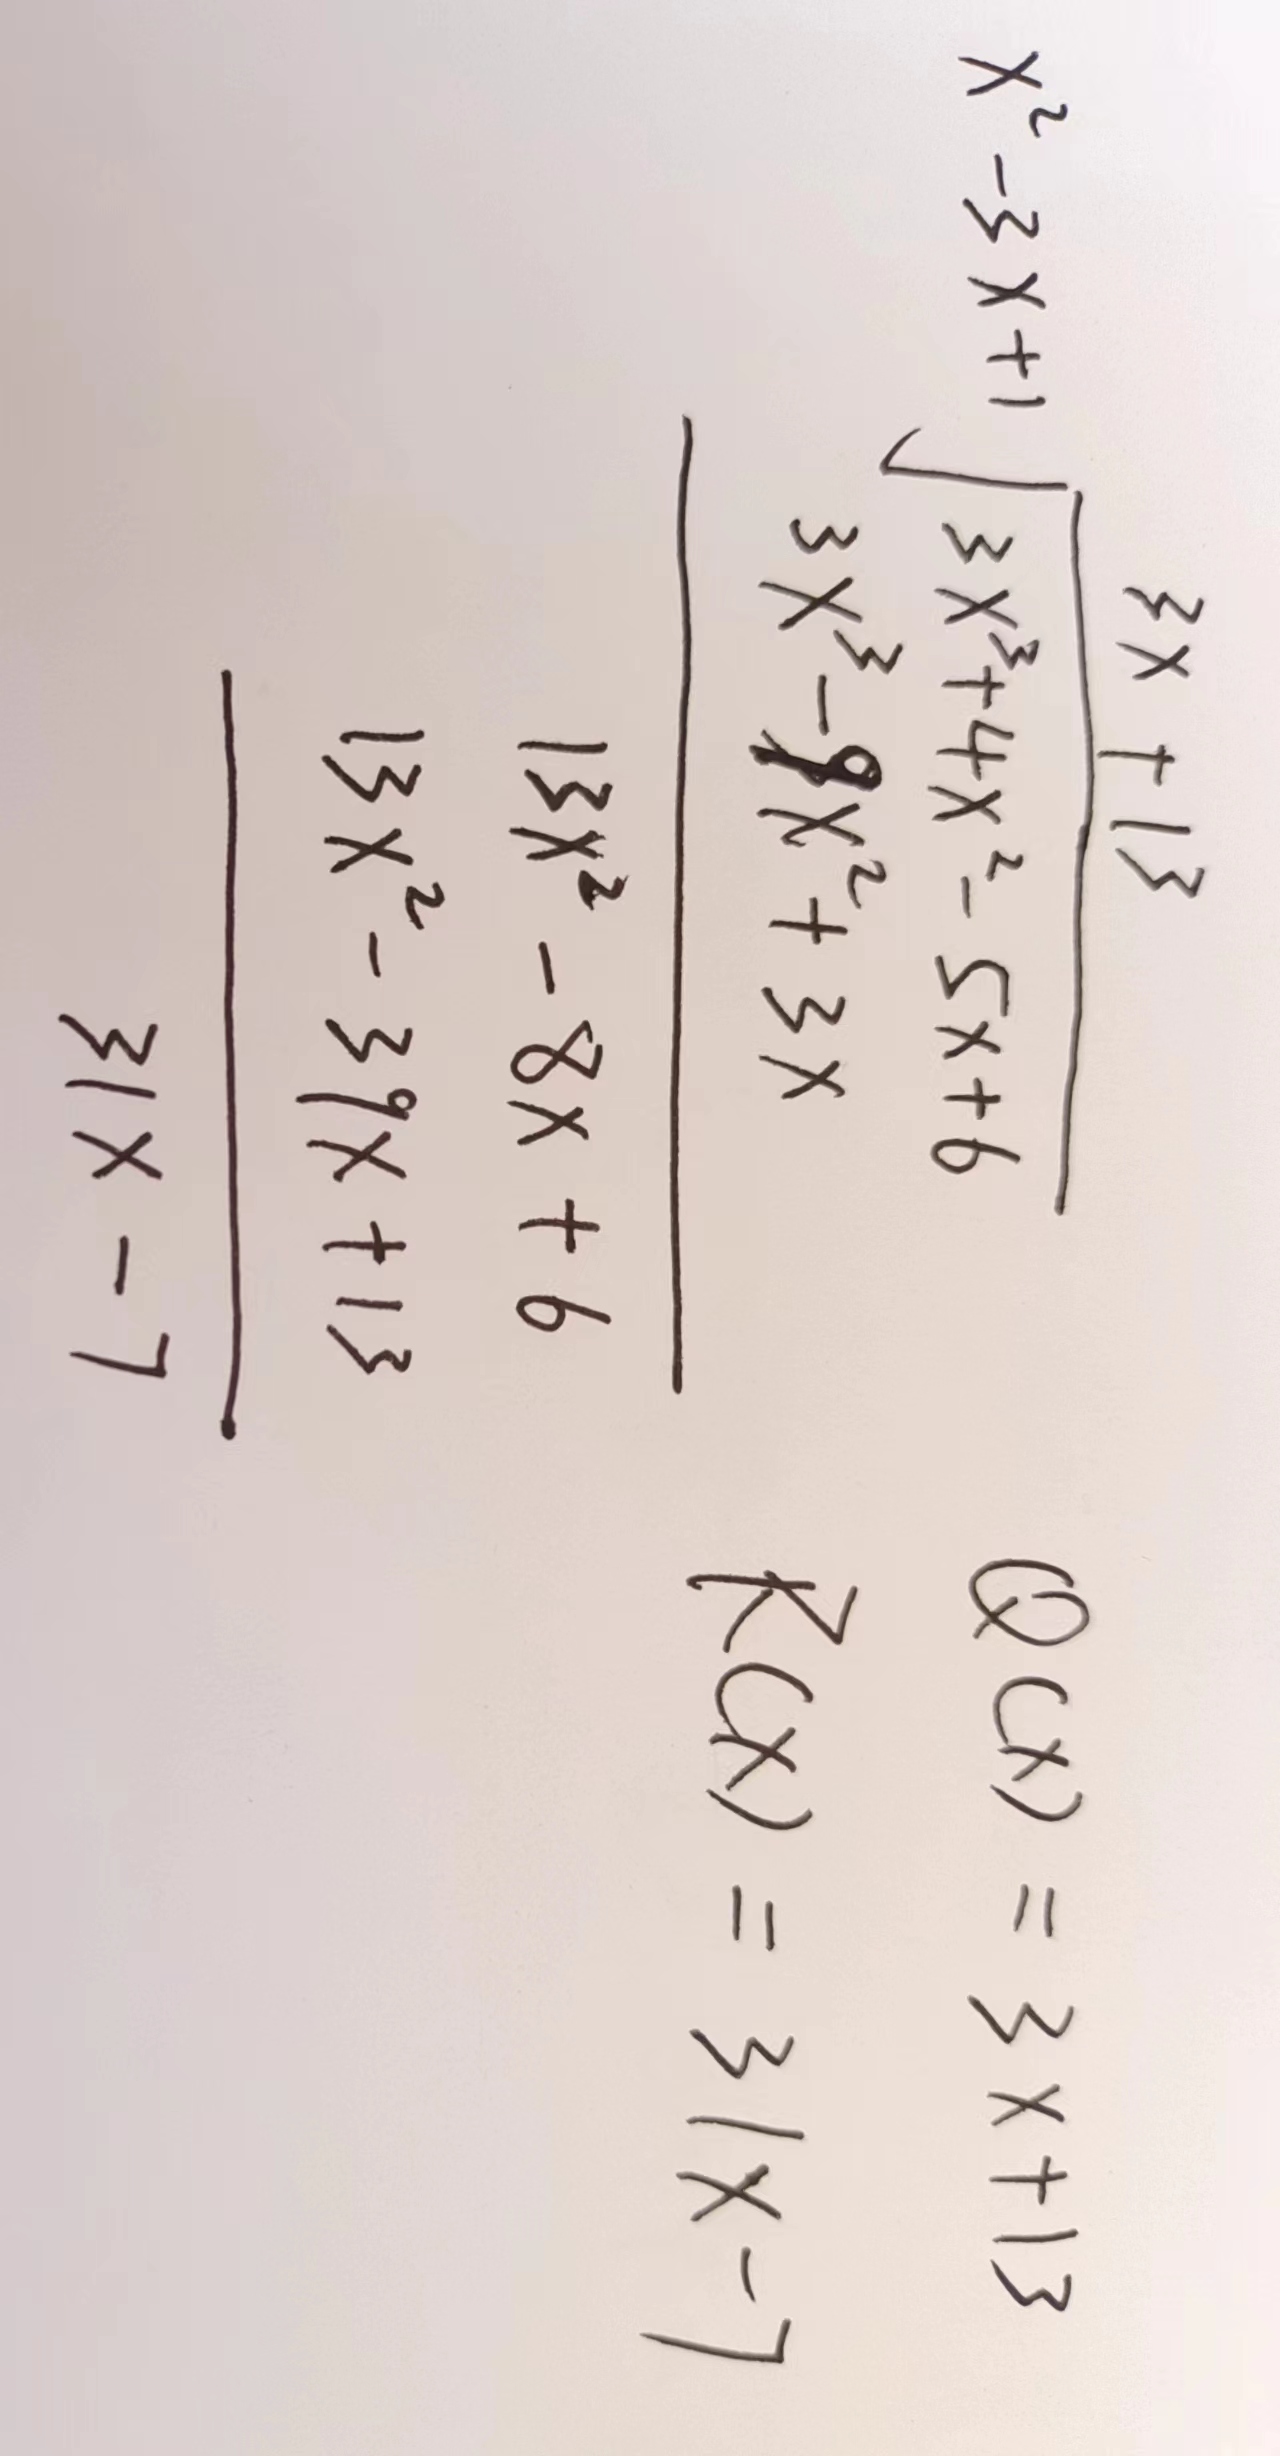 3x + 13
x² - 3x + 1 √ 3x³ + 4x² - 5x + 6
3x³ - 9x² + 3x
13x² - 8x + 6
13x² - 39x + 13
31x - 7
Q(x) = 3x + 13
R(x) = 31x - 7